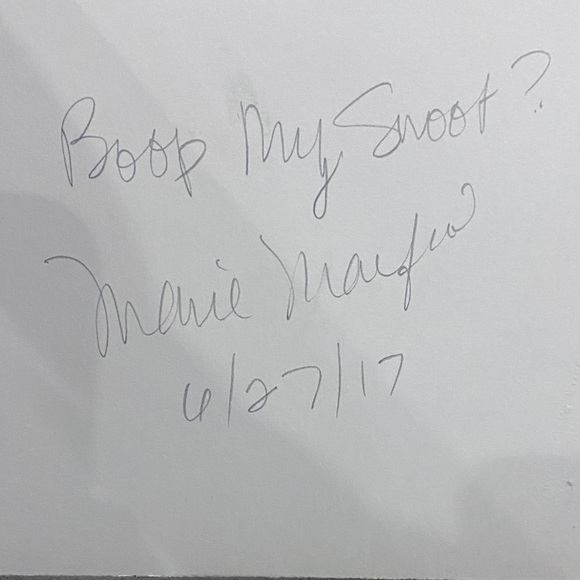 Boop My Snoot?
Marie
6/27/17